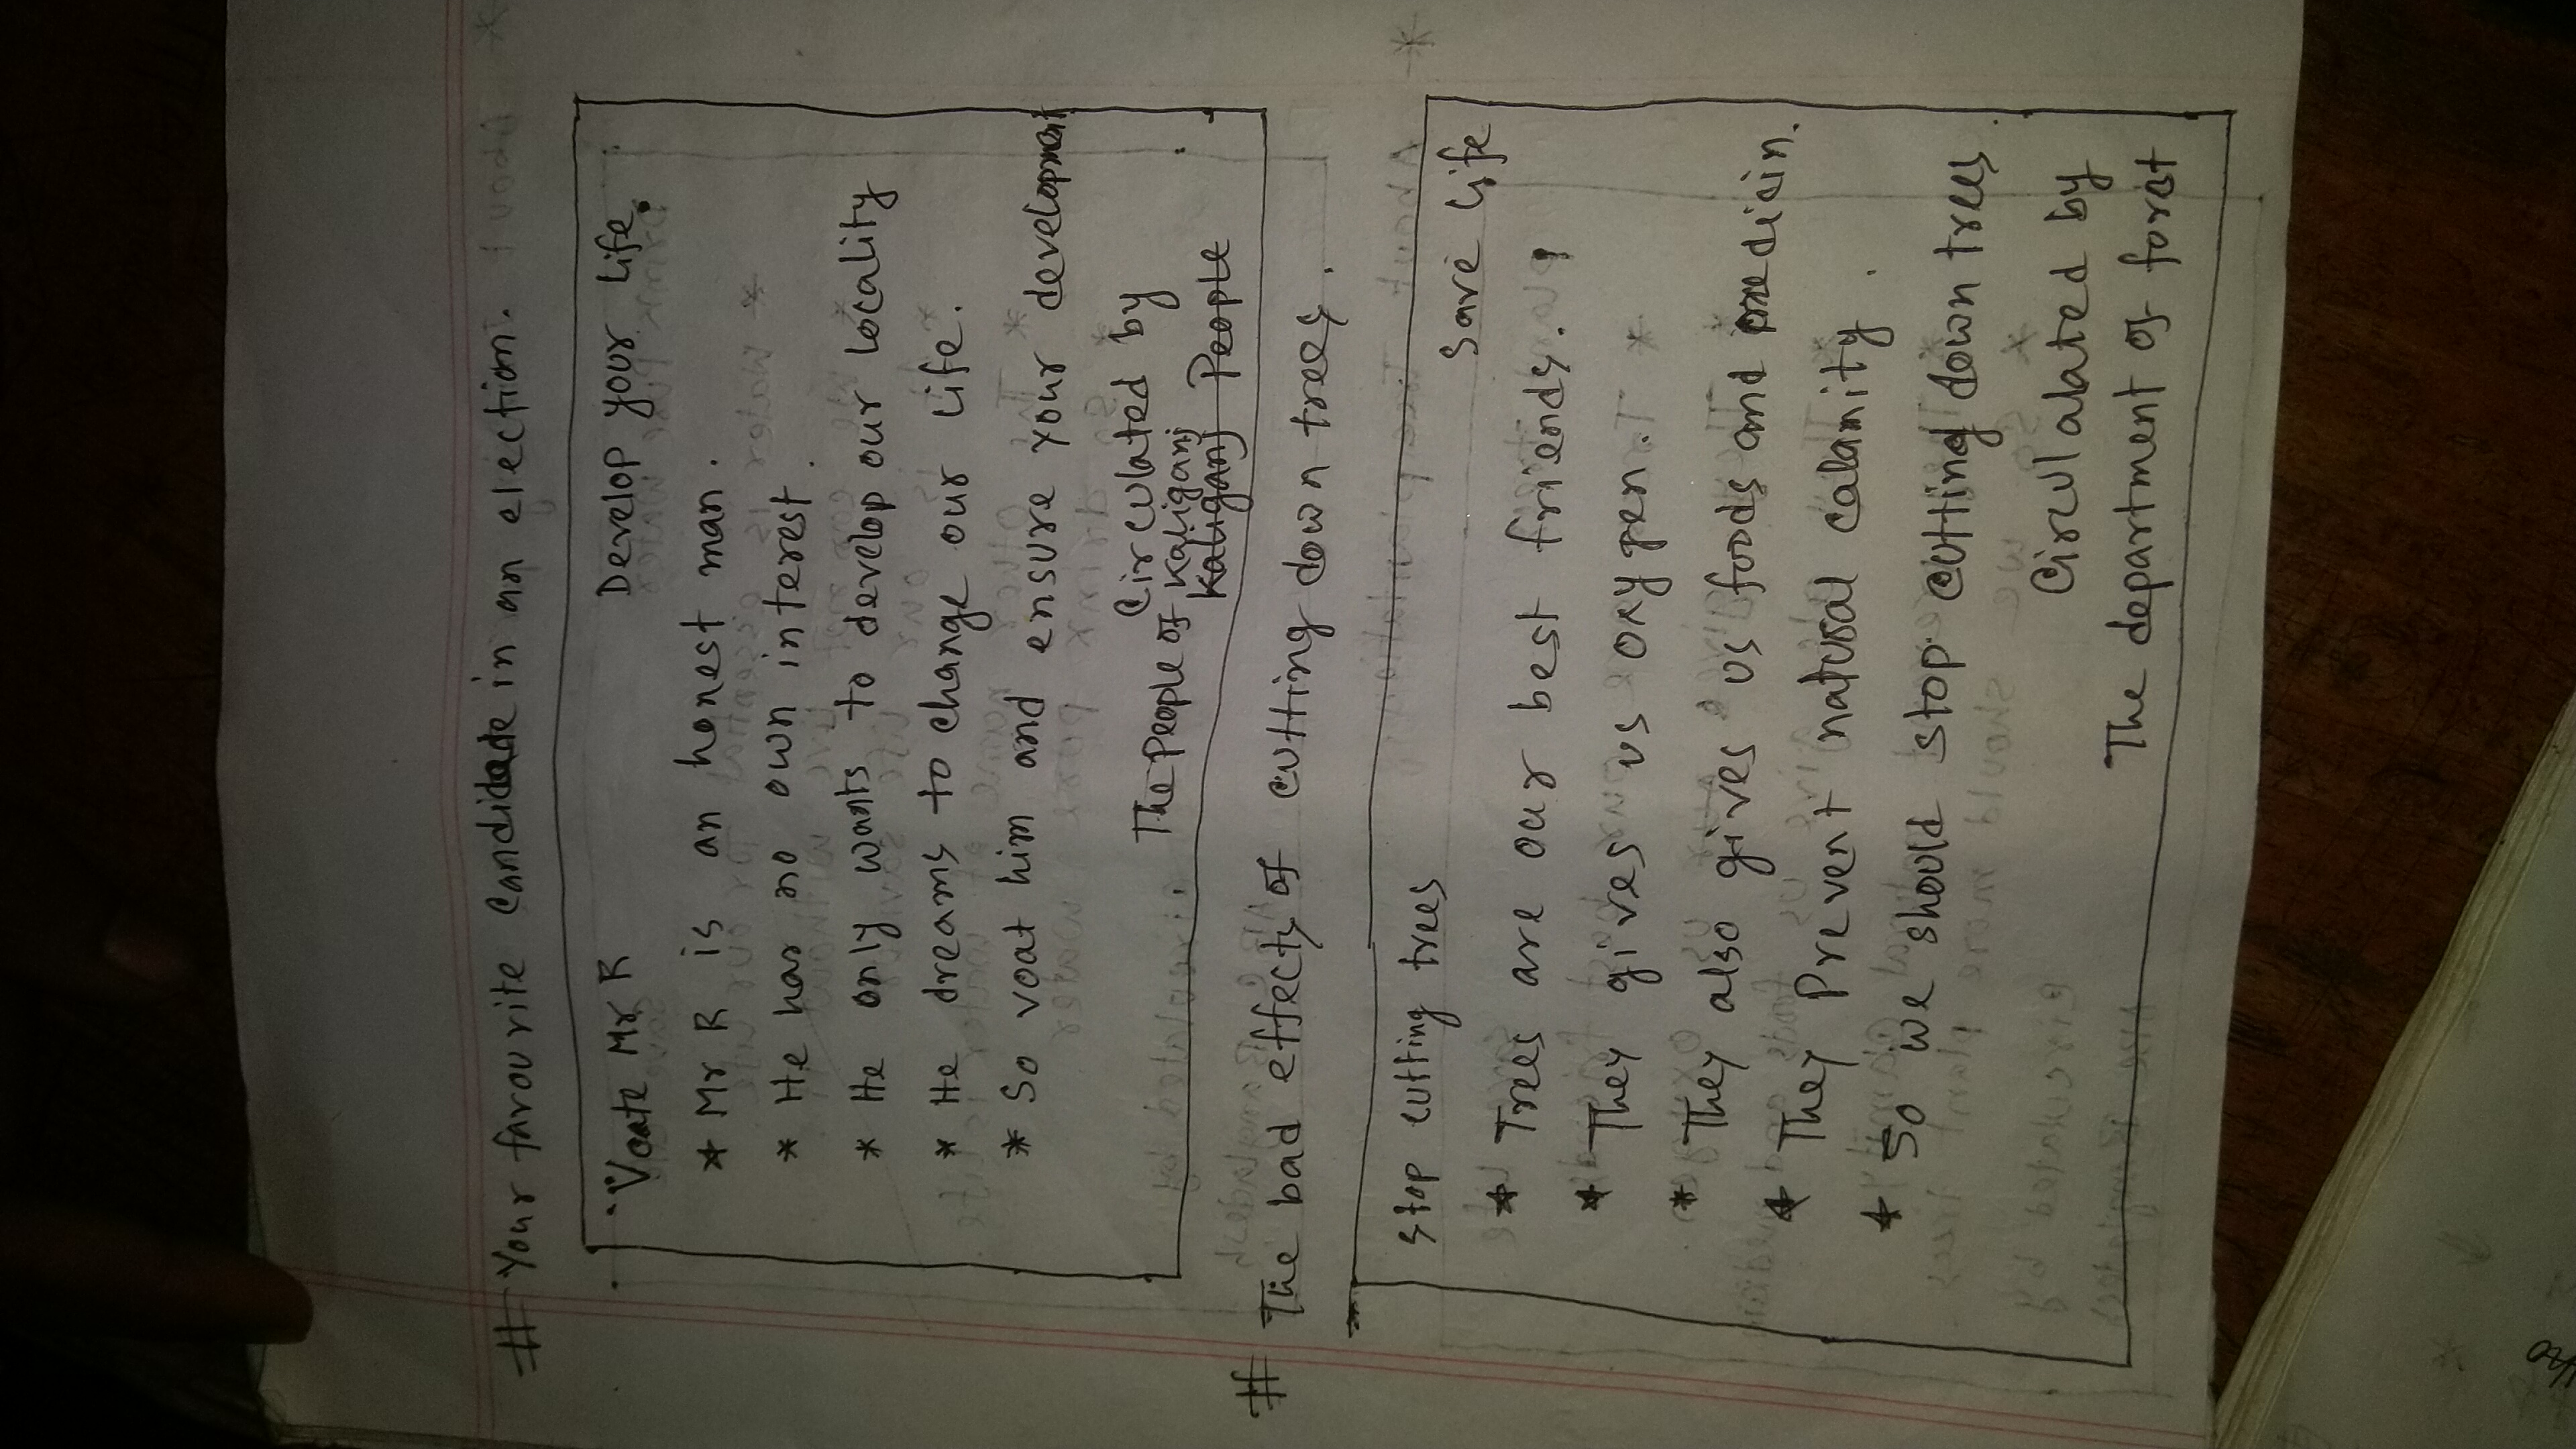 # Your favourite candidade in an election.
Voate Mr R Develop your life.
* Mr R is an honest man.
* He has no own interest.
* He only wants to develop our locality
* He dreams to change our life.
* So voat him and ensure your development
Circulated by
The People of Kaliganj
Kaliganj People
# The bad effects of cutting down trees.
Stop cutting trees
Save life
* Trees are our best friends.
* They gives us oxygen.
* They also gives us foods and medicin.
* They Prevent natural calamity.
* So we should stop cutting down trees.
Circulalated by
The department of forest